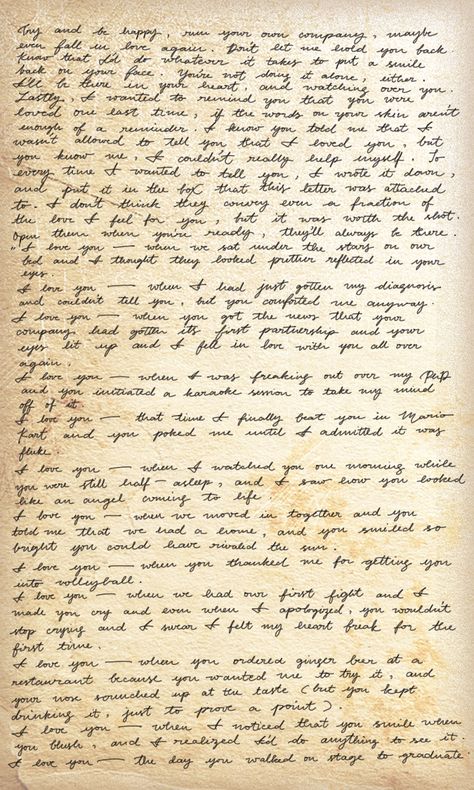 Try and be happy, run your own company, maybe
even fall in love again. Don't let me hold you back.
Know that I'd do whatever it takes to put a smile
back on your face. You're not doing it alone, either.
I'll be there in your heart, and watching over you.
Lastly, I wanted to remind you that you were
loved one last time, if the words on your skin aren't
enough of a reminder. I know you told me that I
wasn't allowed to tell you that I loved you, but
you know me, I couldn't really help myself. So
every time I wanted to tell you, I wrote it down,
and put it in the box that this letter was attached
to. I don't think they convey even a fraction of
the love I feel for you, but it was worth the shot.
Open them when you're ready, they'll always be there.
"I love you — when we sat under the stars on our
bed and I thought they looked prettier reflected in your
eyes.
I love you — when I had just gotten my diagnosis
and couldn't tell you, but you comforted me anyway.
I love you — when you got the news that your
company had gotten its first partnership and your
eyes lit up and I fell in love with you all over
again.
I love you — when I was freaking out over my PhD
and you initiated a karaoke session to take my mind
off of it.
I love you — that time I finally beat you in Mario
Kart and you poked me until I admitted it was
fluke.
I love you — when I watched you one morning while
you were still half-asleep, and I saw how you looked
like an angel coming to life.
I love you — when we moved in together and you
told me that we had a home, and you smiled so
bright you could have rivaled the sun.
I love you — when you thanked me for getting you
into volleyball.
I love you — when we had our first fight and I
made you cry and even when I apologized, you wouldn't
stop crying and I swear I felt my heart break for the
first time.
I love you — when you ordered ginger beer at a
restaurant because you wanted me to try it, and
your nose scrunched up at the taste (but you kept
drinking it, just to prove a point).
I love you — when I noticed that you smile when
you blush, and I realized I'd do anything to see it.
I love you — the day you walked on stage to graduate